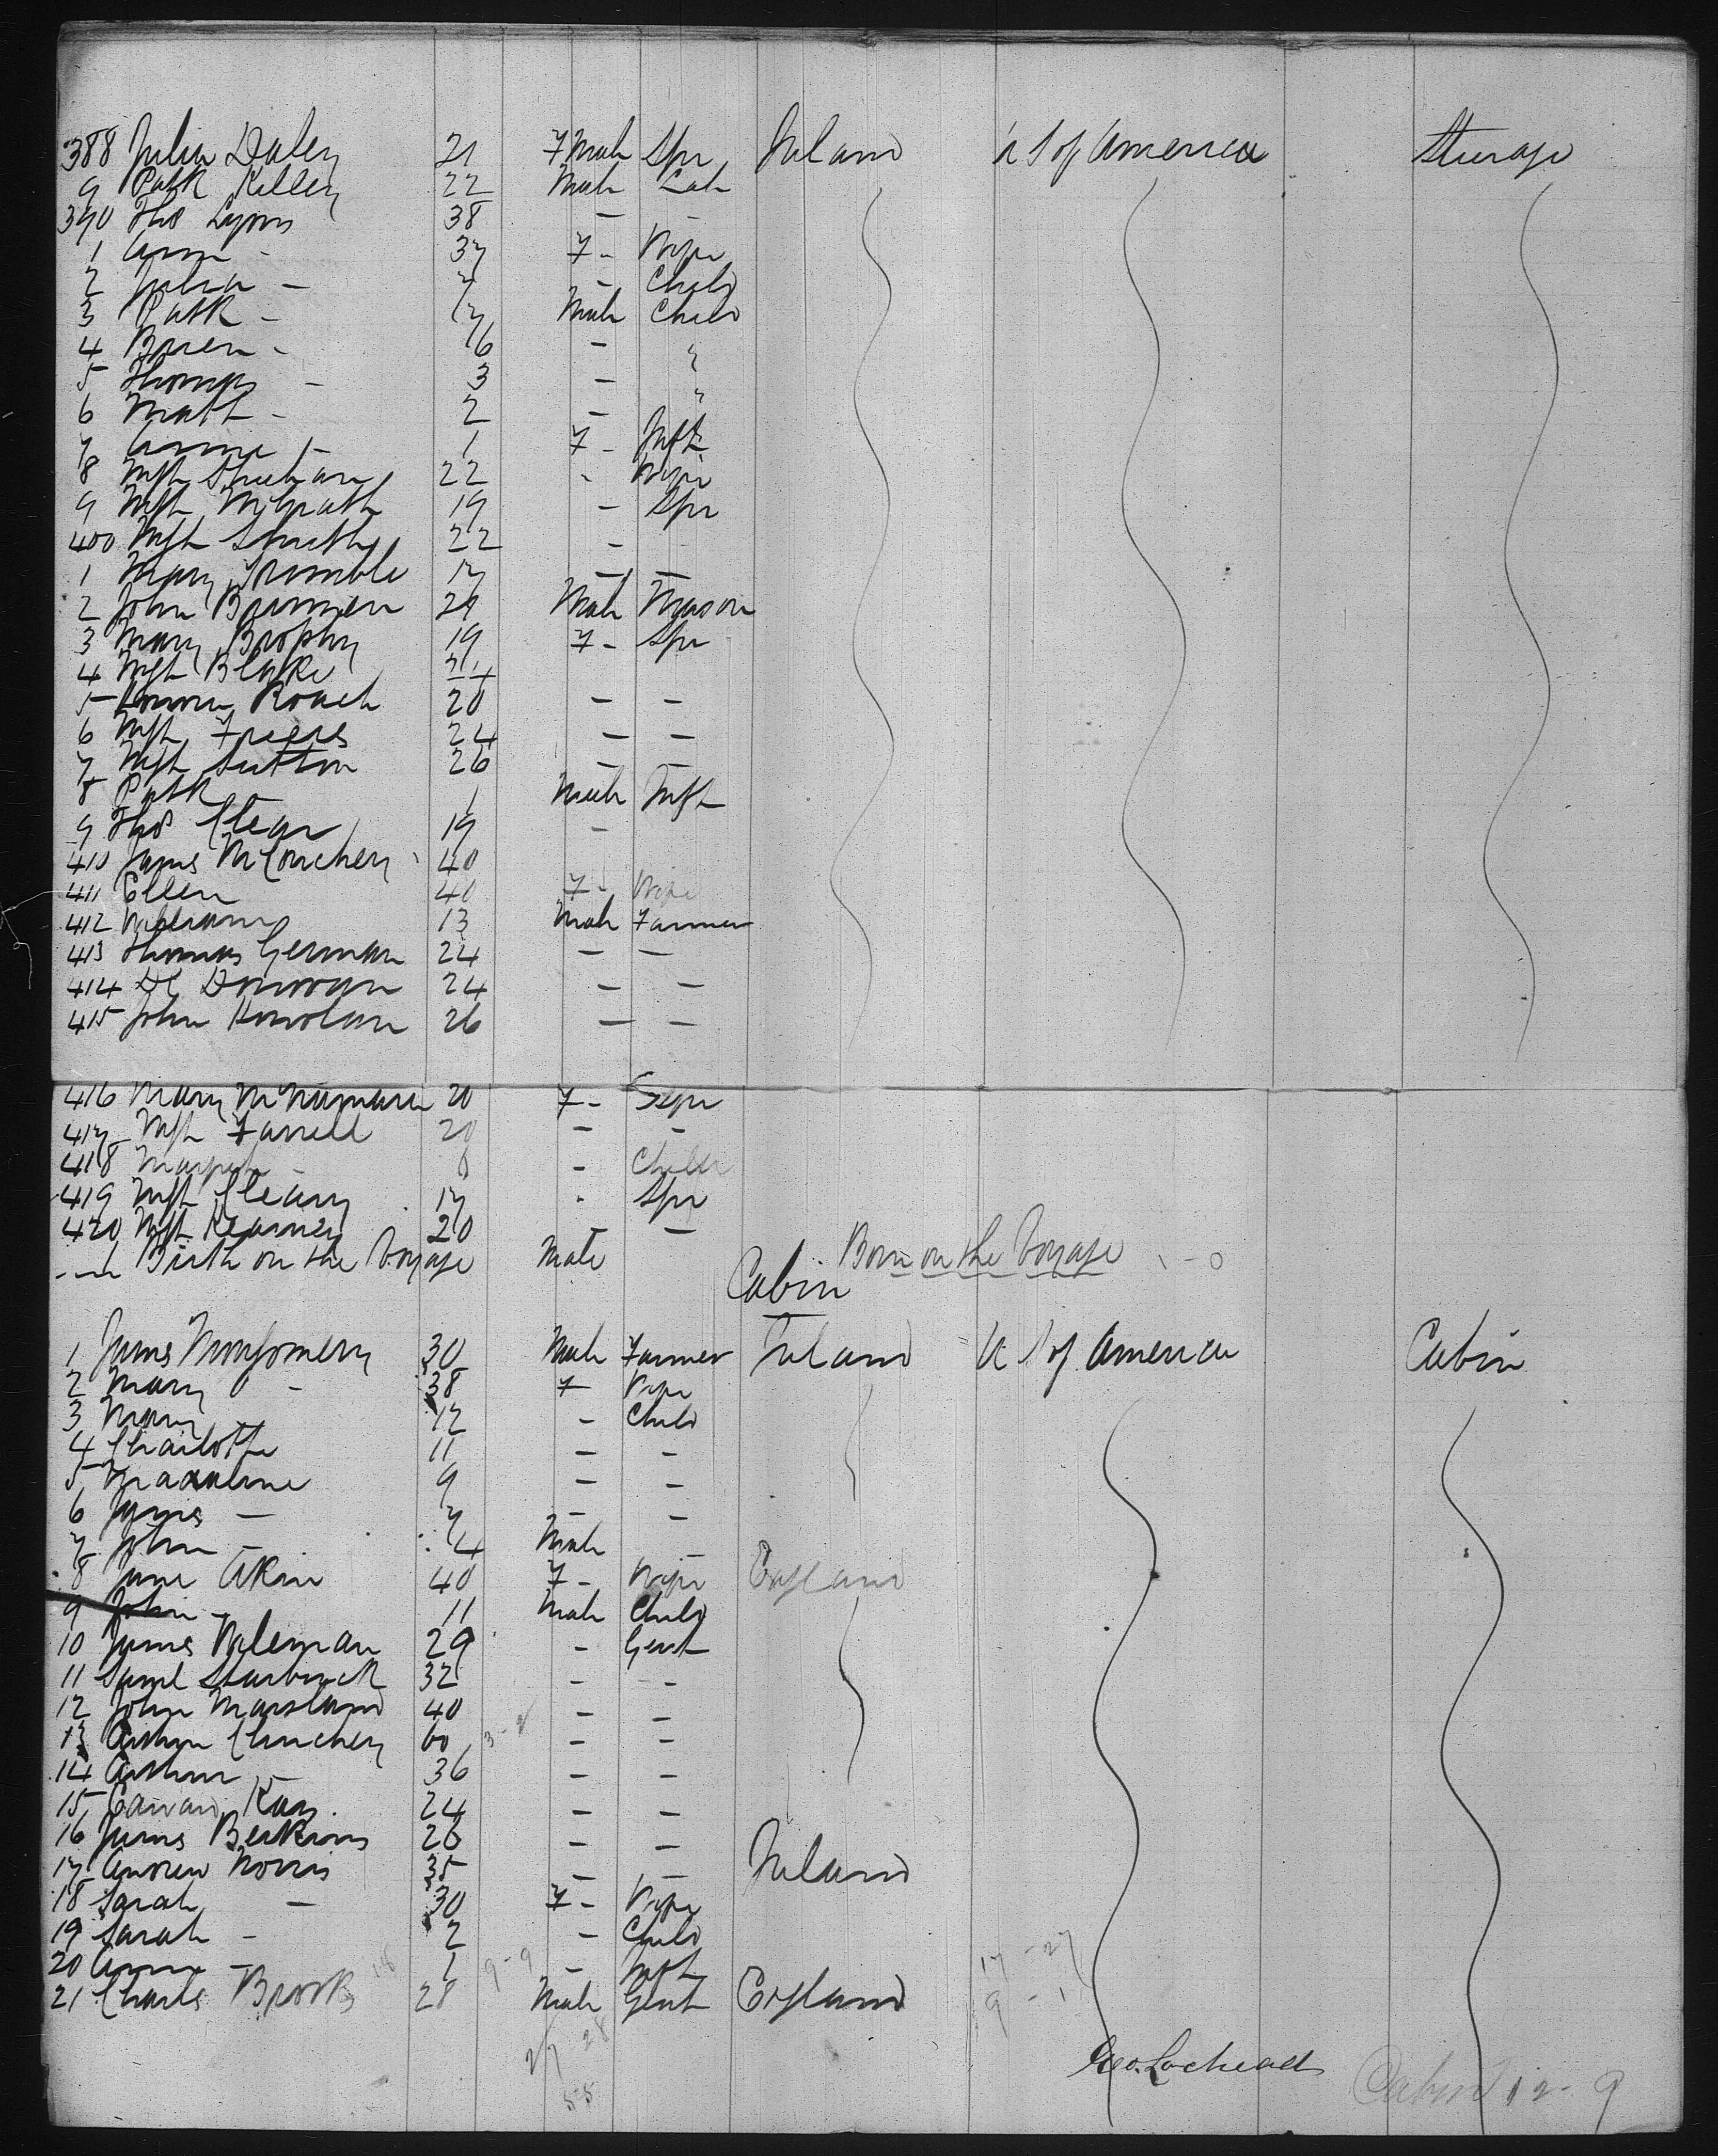 388 Julia Daley 21 F Male Spr Ireland U S of America Steerage
9 Patk Kelley 22 Male Lab
390 Thos Lyons 38 — —
1 Ann - 37 F - Wife
2 Julia — 7 — Child
3 Patk - Male Child
4 - 6 — "
5 Thomas — 3 — "
6 Matt - 2 —
7 Annie - 1 F - Inft
8 Mgt Sheehan 22 - Wife
9 Mgt McGrath 19 — Spr
400 Mgt Smith 22 —
1 Mary Trimble 17 — —
2 John Brennen 29 Male Mason
3 Mary Brophy 19 F - Spr
4 Mgt Blake
5 Roach 20 — —
6 Mgt 24 — —
7 Mgt Sutton 26 — —
8 Patk 1 Male Inft
9 Thos Clear 19 —
410 James McConchey 40
411 Ellen 40 F - Wife
412 William 13 Male Farmer
413 Thomas German 24 — —
414 Donovan 24 — —
415 John Hanolan 26 — —
416 Mary McNamara 20 F - Spr
417 Mgt Farrell 20 — —
418 Margret - 8 - Child
419 Mgt Cleary 17 - Spr
420 Mgt Kearney 20 — —
Birth on the Voyage Male Born on the Voyage
Cabin
1 James Montgomery 30 Male Farmer Ireland U S of America Cabin
2 Mary - 38 F Wife
3 Mary 12 - Child
4 Charlotte 11 — -
5 Madaline 9 — -
6 — 7 — -
7 John - 4 Male -
8 Jane Akin 40 F - Wife England
9 John - 11 Male Child
10 James 29 - Gent
11 Saml Starbuck 32 - -
12 John Marsland 40 - -
13 Arthur Clinchey 60 - -
14 Arthur - 36 - -
15 Edward Kay 24 - -
16 James 26 - -
17 Andrew Norris 35 — — Ireland
18 Sarah — 30 F - Wife
19 Sarah - 2 - Child
20 Anne - 1 - Inft
21 Charles Brooks 28 Male Gent England
Geo. Lochead